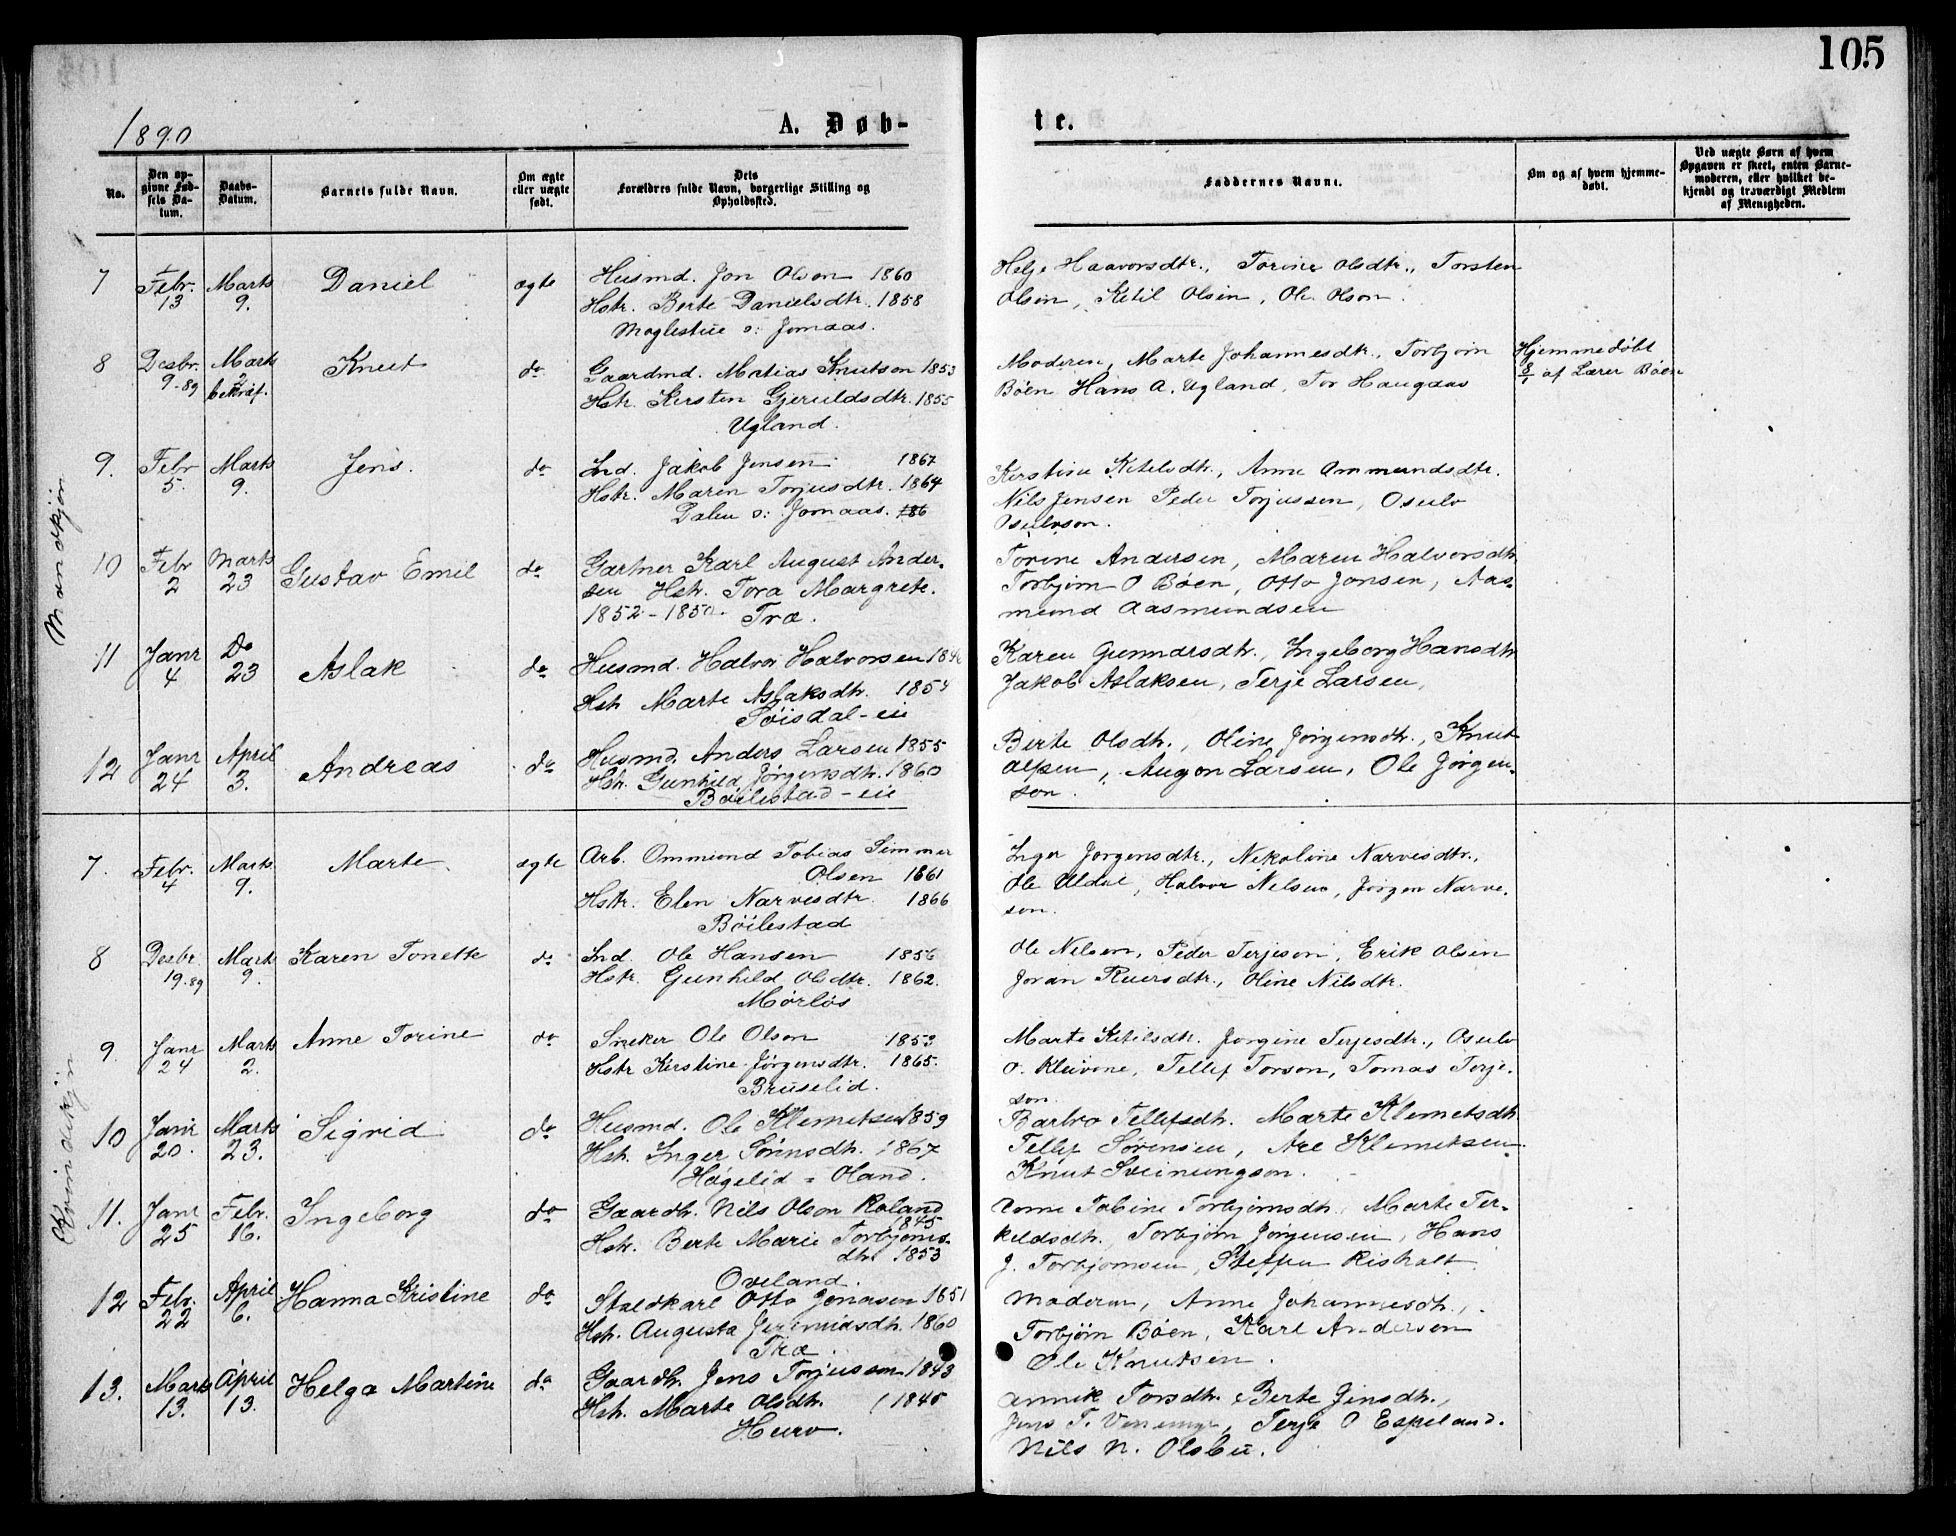 105
1890
A. Døb-
te.
No.
Den op-
givne Fød-
sels Da-
tum.
Daabs-
Datum.
Barnets fulde Navn.
Om ægte
eller uægte
født.
Dets
Forældres fulde Navn, borgerlige Stilling og
Opholdssted.
Faddernes Navne.
Om og af hvem hjemme-
døbt.
Ved uægte Børn af hvem
Opgaven er skeet, enten Barne-
moderen, eller hvilket be-
kjendt og troværdigt Medlem
af Menigheden.
Mandkjøn
7 Febr. 13 Marts 9. Daniel ægte Husmd. Jon Olson 1860
Hstr. Berte Danielsdtr. 1858
Moglestue o: Jomaas.
Helje Haavorsdtr., Torine Olsdtr., Torsten
Olsen, Ketil Olsen, Ole Olson.
8 Desbr. 9-89 Marts 2 bekræf. Knut do Gaardmd. Matias Knutson 1853
Hstr. Kirsten Gjeruldsdtr. 1855
Ugland.
Moderen, Marte Johannesdtr., Torbjørn
Bøen, Hans A. Ugland, Tor Haugaas
Hjemmedøbt
8/1 af Lærer Bøen
9. Febr 5. Marts 9. Jens. do Ind. Jakob Jensen 1867
Hstr. Maren Torjusdtr. 1864
Dalen o: Jomaas. 186
Kirstine Ketelsdtr., Anne Ommundsdtr.
Nils Jensen Peder Torjussen, Osulv
Osulvson.
10 Febr 2 Marts 23 Gustav Emil do Gartner Karl August Ander-
sen Hstr. Tora Margrete.
1852-1850. Træ.
Torine Andersen, Maren Halvorsdtr.
Torbjørn O Bøen, Otto Jonsen, Aas-
mund Aasmundsen
11 Janr 4 Do 23 Aslak do Husmd. Halvor Halvorsen
Hstr Marte Aslaksdtr. 1854
Søisdal-eie
Karen Gunnarsdtr., Ingeborg Hansdtr
Jakob Aslaksen, Terje Larsen,
12 Janr 24 April 3. Andreas do Husmd. Anders Larsen 1855
Hstr. Gunhild Jørgensdtr. 1860
Bøilestad-eie
Berte Olsdtr., Oline Jørgensdtr., Knut
Augon Larsen, Ole Jørgen-
son.
Kvindekjøn
7. Febr. 4 Marts 9. Marte ægte Arb. Ommund Tobias Simmer
Olsen 1861
Hstr. Elen Narvesdtr. 1866
Bøilestad
Inger Jørgensdtr., Nikoline Narvesdtr.,
Ole Uldal, Halvor Nelsen, Jørgen Narve-
son.
8 Desbr. 19-89 Marts 9. Karen Tonette do Ind. Ole Hansen 1856
Hstr. Gunhild Olsdtr. 1862.
Mørløs
Ole Nelson, Peder Terjeson, Erik Olsen
Joran Ruersdtr., Oline Nilsdtr.
9. Janr 24 Marts 2. Anne Torine do Sneker Ole Olson 1853
Hstr Kirstine Jørgensdtr. 1865.
Bruselid.
Marte Ketilsdtr. Jørgine Terjesdtr., Osulv
O. Kleivene, Tellef Torson, Tomas Terje-
son.
10 Janr 20. Marts 23. Sigrid do Husmd. Ole Klemetsen 1859
Hstr. Inger Sørensdtr. 1867
Høgelid = Oland.
Barbro Tellefsdtr. Marte Klemetsdtr
Tellef Sørensen, Are Klemetsen.
Knut Sveinungson.
11. Janr 25 Febr. 16. Ingeborg do Gaardbr. Nils Olson Roland
1845
Hstr. Berte Marie Torbjørns-
dtr 1853
Oveland.
Anne Tobine Torbjørnsdtr. Marte Ter-
keldsdtr., Torbjørn Jørgensen, Hans
J. Torbjørnsen, Steffen Risholt
12 Febr. 22 April 6. Hanna Kristine do Staldkarl Otto Jonasen 1851
Hstr. Augusta Jeremiasdtr. 1860
Træ
Moderen, Anne Johannesdtr.,
Torbjørn Bøen, Karl Andersen
Ole Knutsen.
13. Marts 13. April 13. Helga Martine do Gaardbr. Jens Torjussen 1843
Hstr. Marte Olsdtr. 1845
Heiro.
Annik Torsdtr. Berte Jinsdtr.,
Jens T. Terje O Espeland.
Nils N. Olsbu.